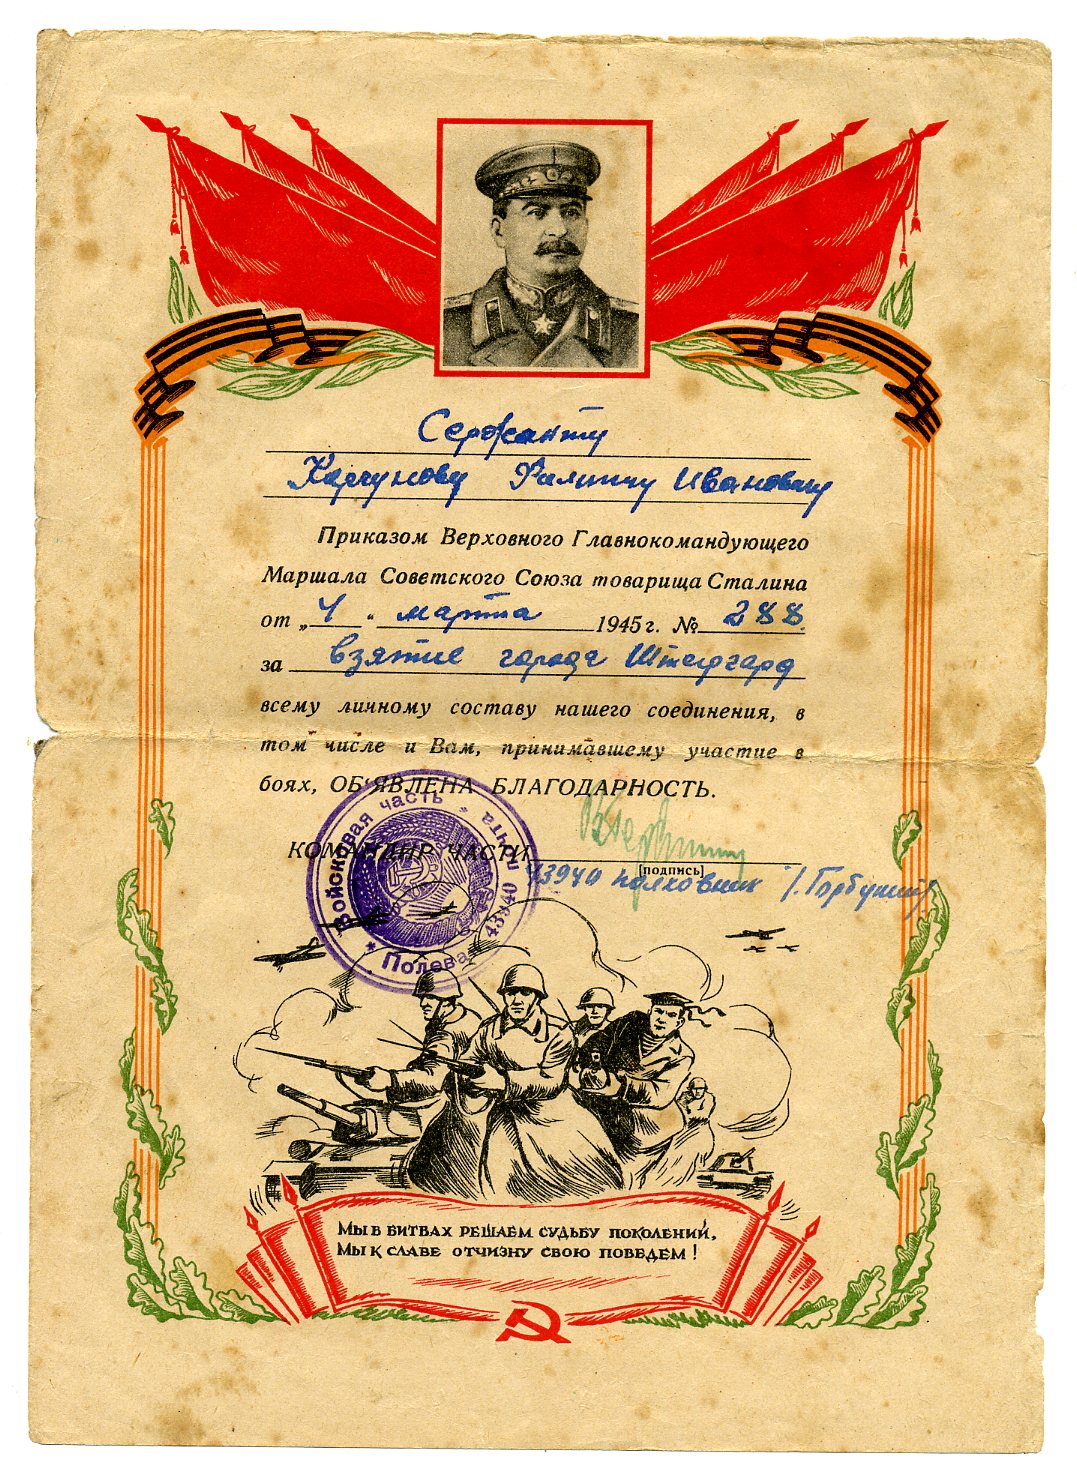 Сержанту
Карчунову Филиппу Ивановичу
Приказом Верховного Главнокомандующего
Маршала Советского Союза товарища Сталина
от „4“ марта 1945 г. № 288.
за взятие города Штаргард
всему личному составу нашего соединения, в
том числе и Вам, принимавшему участие в
боях, ОБ'ЯВЛЕНА БЛАГОДАРНОСТЬ.
КОМАНДИР ЧАСТИ
[подпись]
43940 полковник
Войсковая часть * Полевая почта 43940 *
МЫ В БИТВАХ РЕШАЕМ СУДЬБУ ПОКОЛЕНИЙ,
МЫ К СЛАВЕ ОТЧИЗНУ СВОЮ ПОВЕДЕМ!